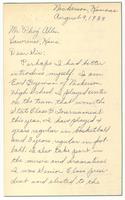 Nickerson, Kansas
August 9, 1934
Mr. Phog Allen
Lawrence, Kans.
Dear Sir:
Perhaps I had better
introduce myself. I am
of Nickerson
High School. I played center
on the team that won the
State Class B Tournament
this year. I have played 4
years regular in basketball
and 3 years regular in foot
ball. I also take part in
the music and dramatics.
I was Senior Class presi
dent and elected to the